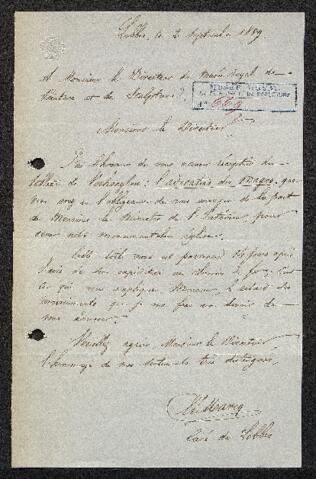 Lobbes, le 2 Septembre 1889
A Monsieur le Directeur du Musée Royal de
Peinture et de Sculpture
Monsieur le Directeur
J'ai l'honneur de vous accuser réception du
tableau de : l'adoration des Mages, que
vous avez eu l'obligeance de nous envoyer de la part
de Monsieur le Ministre de l'Intérieur pour
notre monumentale église.
Cette toile nous est parvenue jours après
l'avis de son expédition au chemin de fer; c'est
ce qui vous explique Monsieur le retard des
remerciements que je me fais un devoir de
vous
Veuillez agréer Monsieur le Directeur
l'hommage de mes sentiments très distingués.
Curé de Lobbes